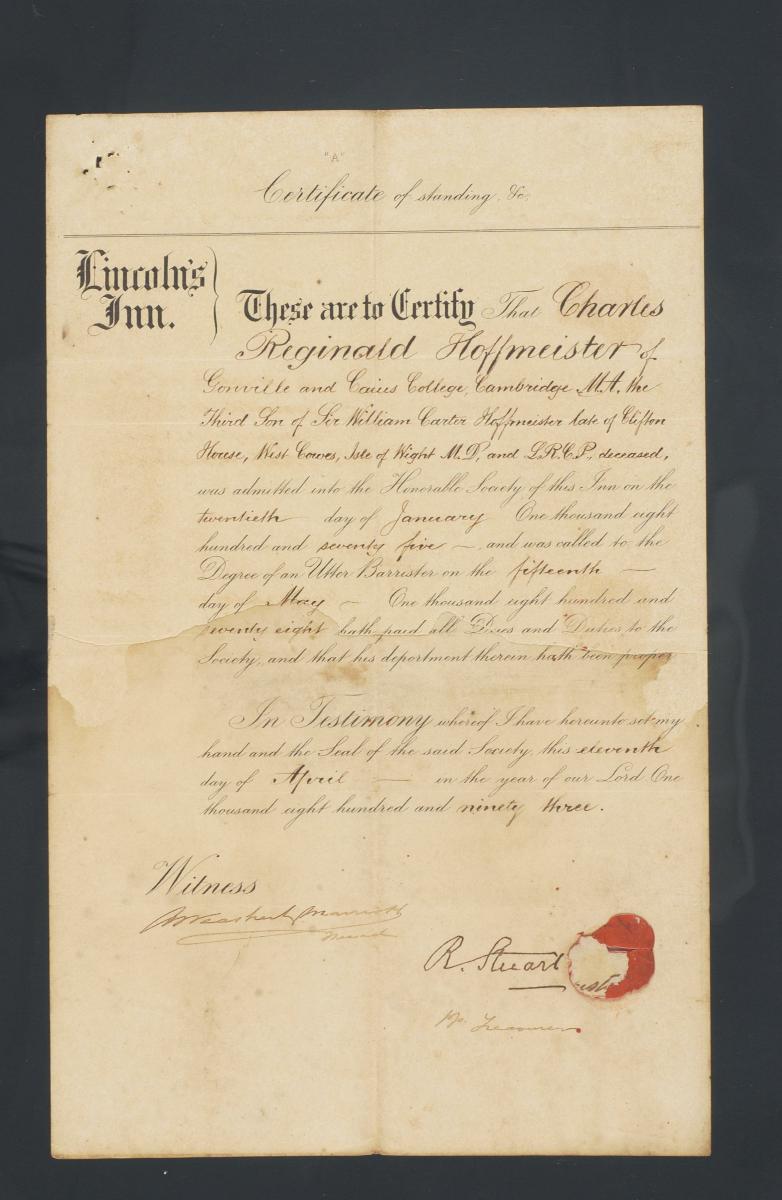 "A"
Certificate of standing &c.
Lincoln's
Inn.
These are to Certify That Charles
Reginald Hoffmeister of
Gonville and Caius College, Cambridge M.A. the
Third Son of Sir William Carter Hoffmeister late of Clifton
House, West Cowes, Isle of Wight M.D. and L.R.C.P., deceased,
was admitted into the Honorable Society of this Inn on the
twentieth day of January One thousand eight
hundred and seventy five — and was called to the
Degree of an Utter Barrister on the fifteenth —
day of May — One thousand eight hundred and
seventy eight hath paid all Dues and Duties to the
Society, and that his deportment therein hath been proper
In Testimony whereof I have hereunto set my
hand and the Seal of the said Society, this eleventh
day of April — in the year of our Lord One
thousand eight hundred and ninety three.
Witness
Marriott
R. Stuart
Treasurer